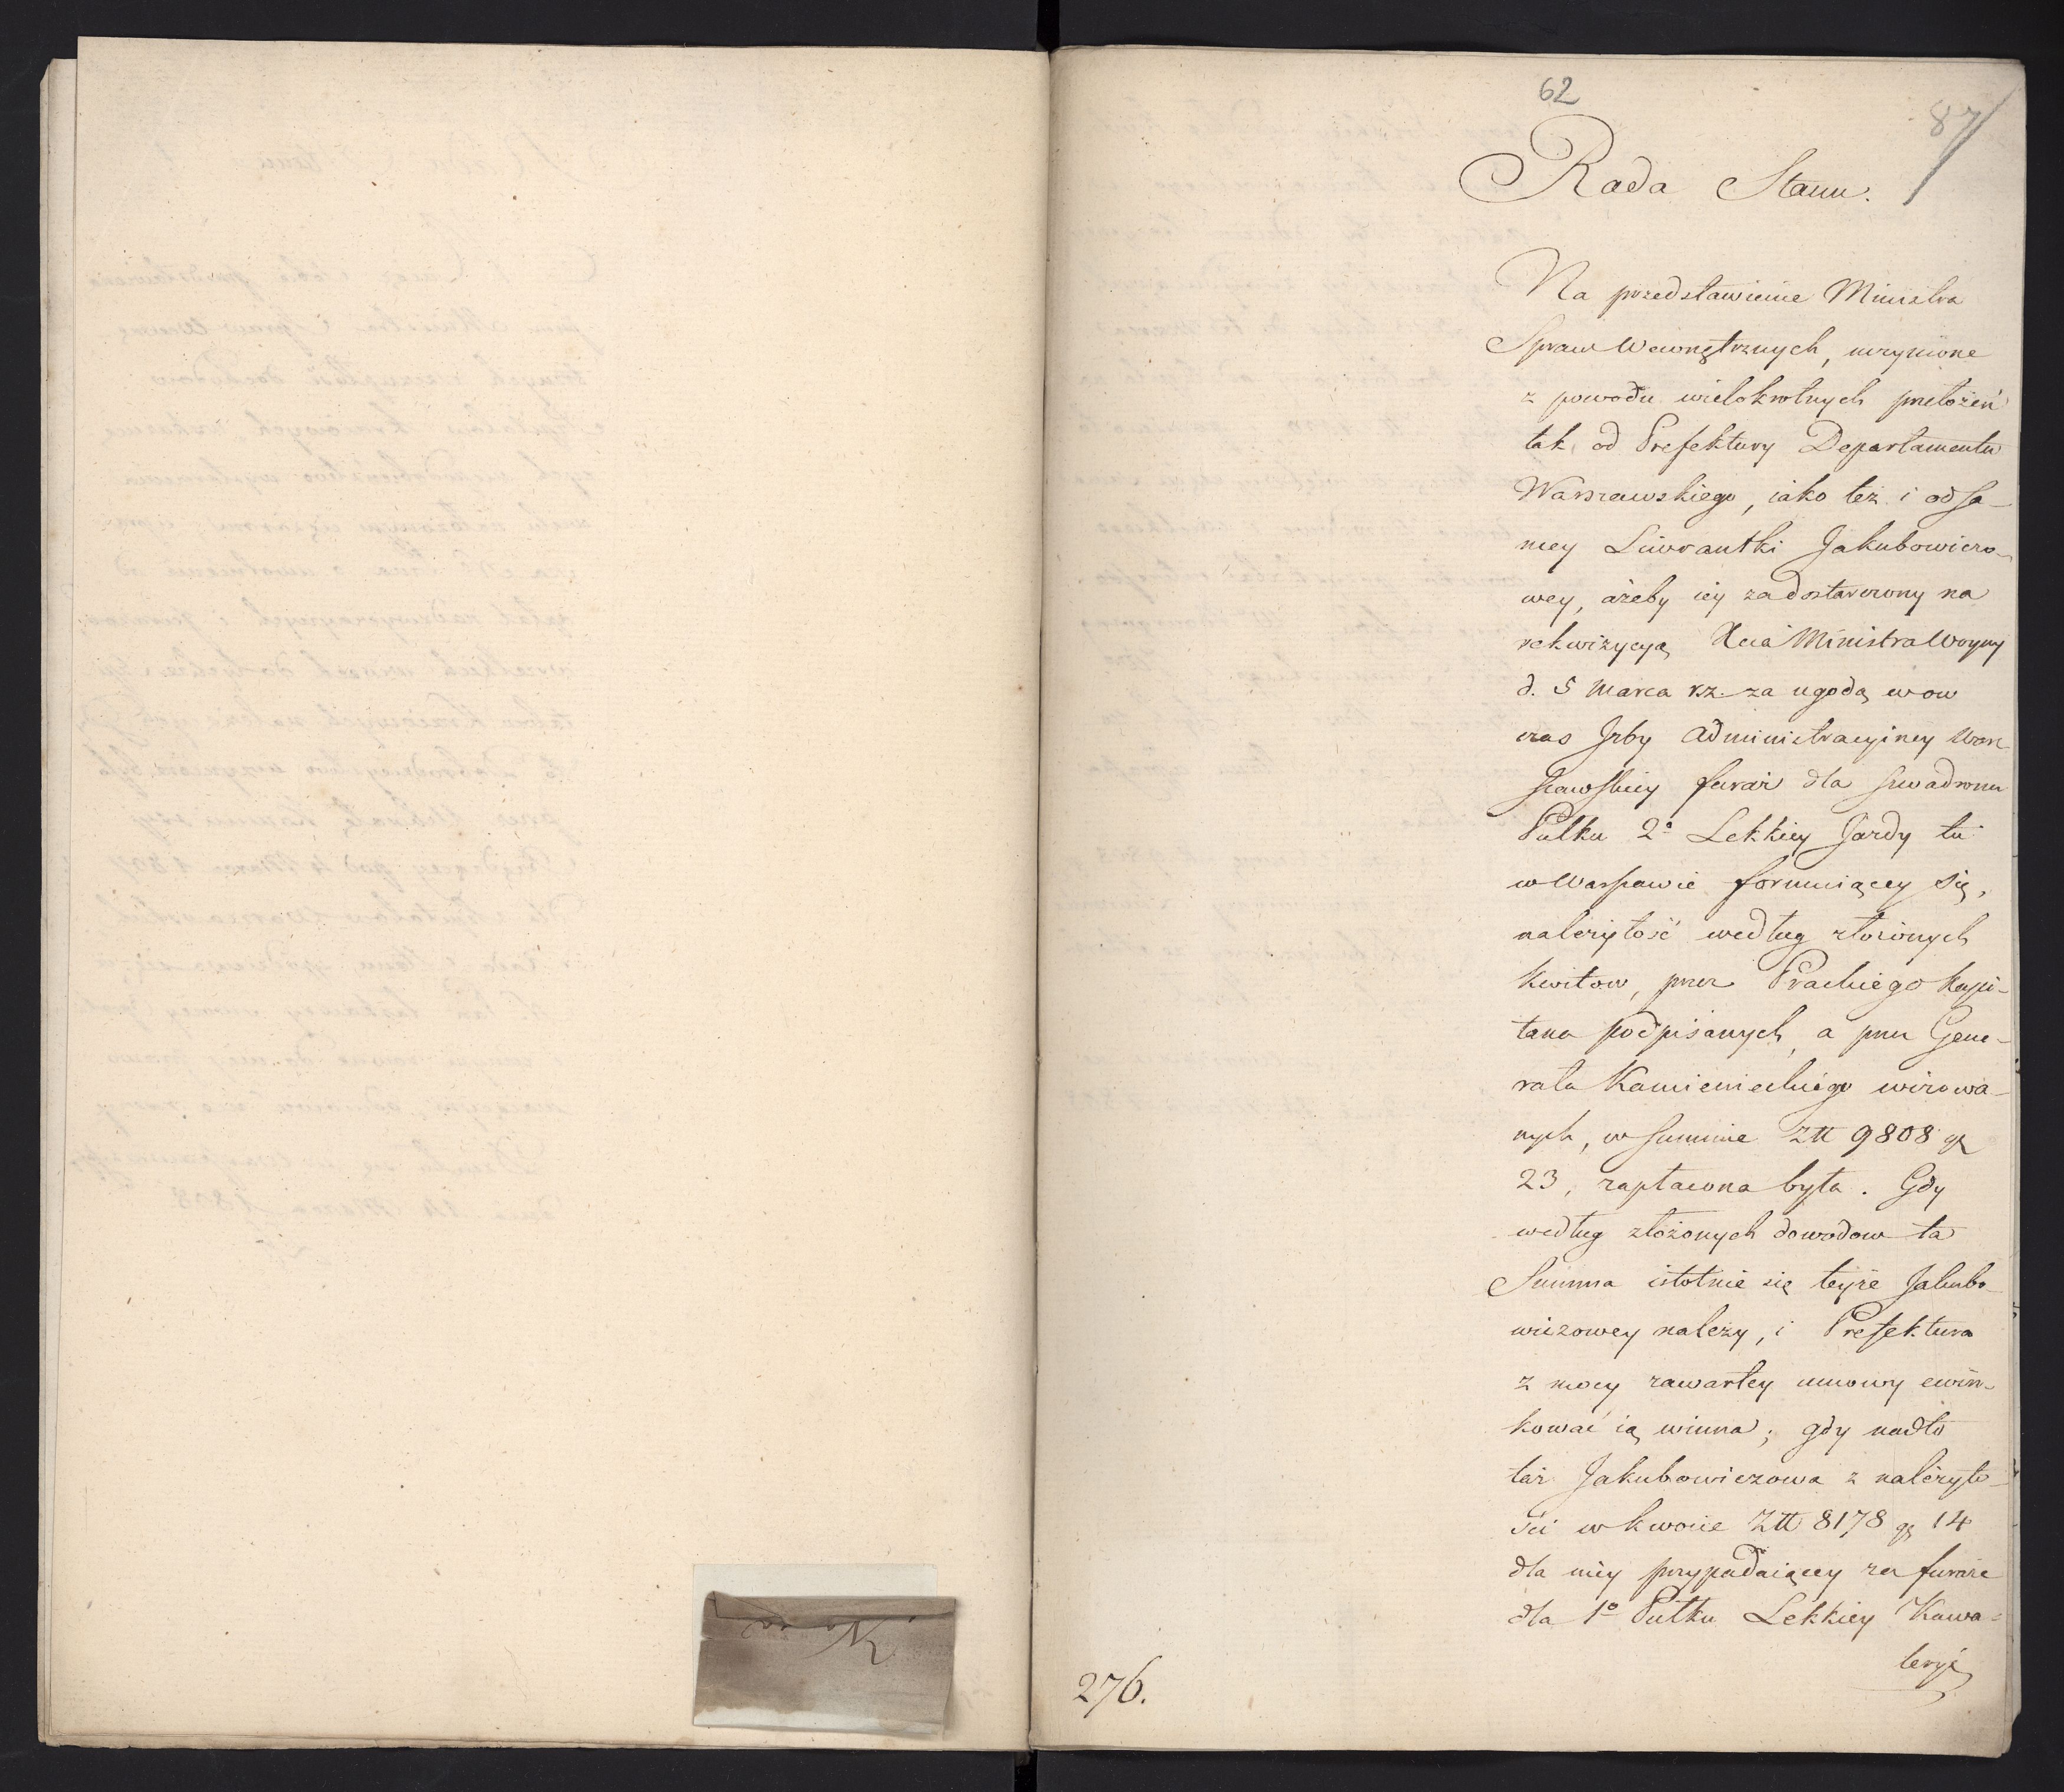 62
87
Rada Stanu.
Na przedstawienie Ministra
Spraw Wewnętrznych, uczynione
z powodu wielokrotnych przełożeń
tak od Prefektury Departamentu
Warszawskiego, iako też i od sa-
mey Liwrantki Jakubowiczo-
wey, ażeby iey za dostawiony na
rekwizycyą Xcia Ministra Woyny
d. 5 Marca rz. za ugodą wow
czas Jzby Administracyiney War-
szawskiey furaż dla szwadronu
Pułku 2o Lekkiey Jazdy tu
w Warszawie formuiącey się,
należytość według złożonych
kwitow, przez Prackiego Kapi-
tana podpisanych, a przez Gene-
rała Kamienieckiego wizowa-
nych, w Summie Złł 9808 gr
23, zapłacona była. Gdy
według złożonych dowodow ta
Summa istotnie się teyże Jakubo
wiczowey należy, i Prefektura
z mocy zawartey umowy ewin-
kować ią winna; gdy nadto
taż Jakubowiczowa z należyto-
ści w kwocie Złł 8178 gr 14
dla niey przypadaiącey za furaże
dla 1o Pułku Lekkiey Kawa-
leryi
276.